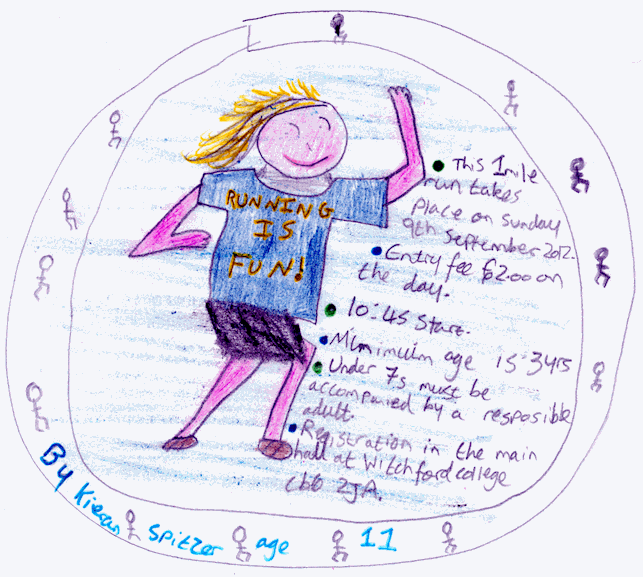 RUNNING
IS
FUN!
This 1mile
run takes
place on sunday
9th September 2012.
Entry fee £2.00 on
the day.
10:45 Start.
Mimimuim age is 3yrs
Under 7s must be
accompanied by a resposible
adult.
Registration in the main
hall at Witchford college
Cb6 2JA.
By Kieran Spitzer age 11